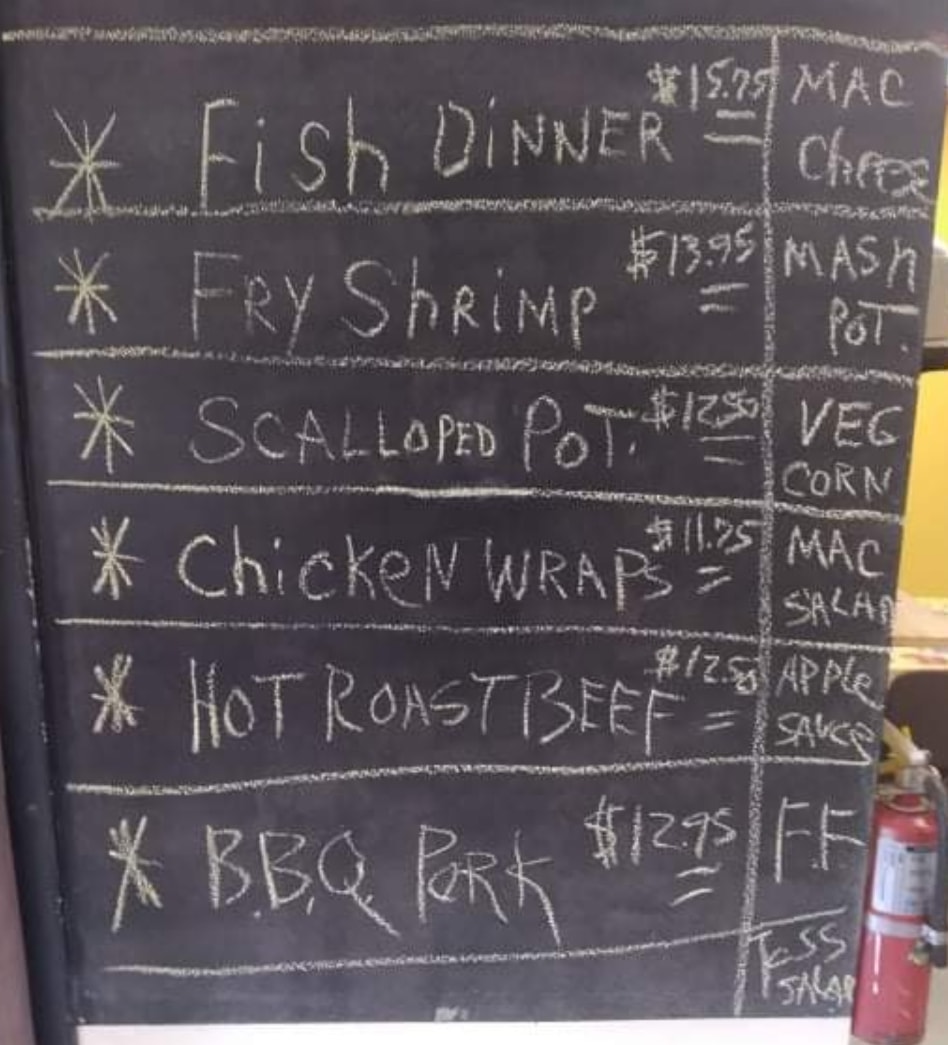 Fish DINNER $15.75 MAC
Cheese
FRY ShRiMP $13.95 MASh
POT.
SCALLOPED POT. $12.50 VEG
CORN
ChickeN WRAPS $11.75 MAC
SALAD
HOT ROAST BEEF $12.50 APPLe
SAUCe
B.B.Q. PORK $12.95 F.F
ToSS
SALAD